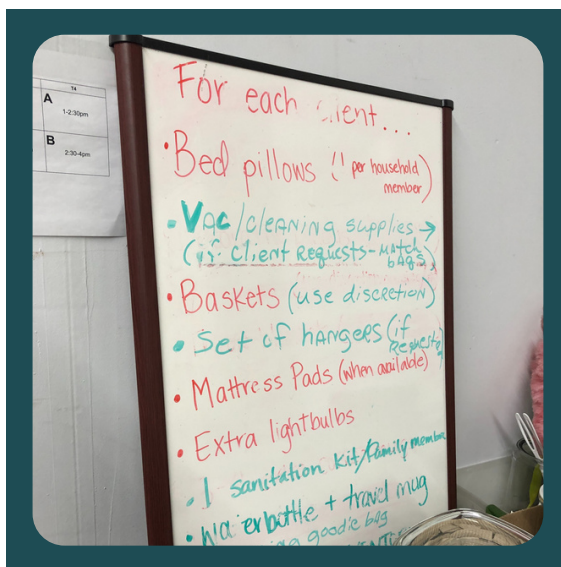 T4
A
1-2:30pm
B
2:30-4pm
For each client...
• Bed pillows (1 per household
member)
• Vac/cleaning supplies →
(if client requests - match
bags)
• Baskets (use discretion)
• Set of hangers (if
requested)
• Mattress Pads (when available)
• Extra lightbulbs
• 1 sanitation kit/family member
• Waterbottle + travel mug
goodie bag